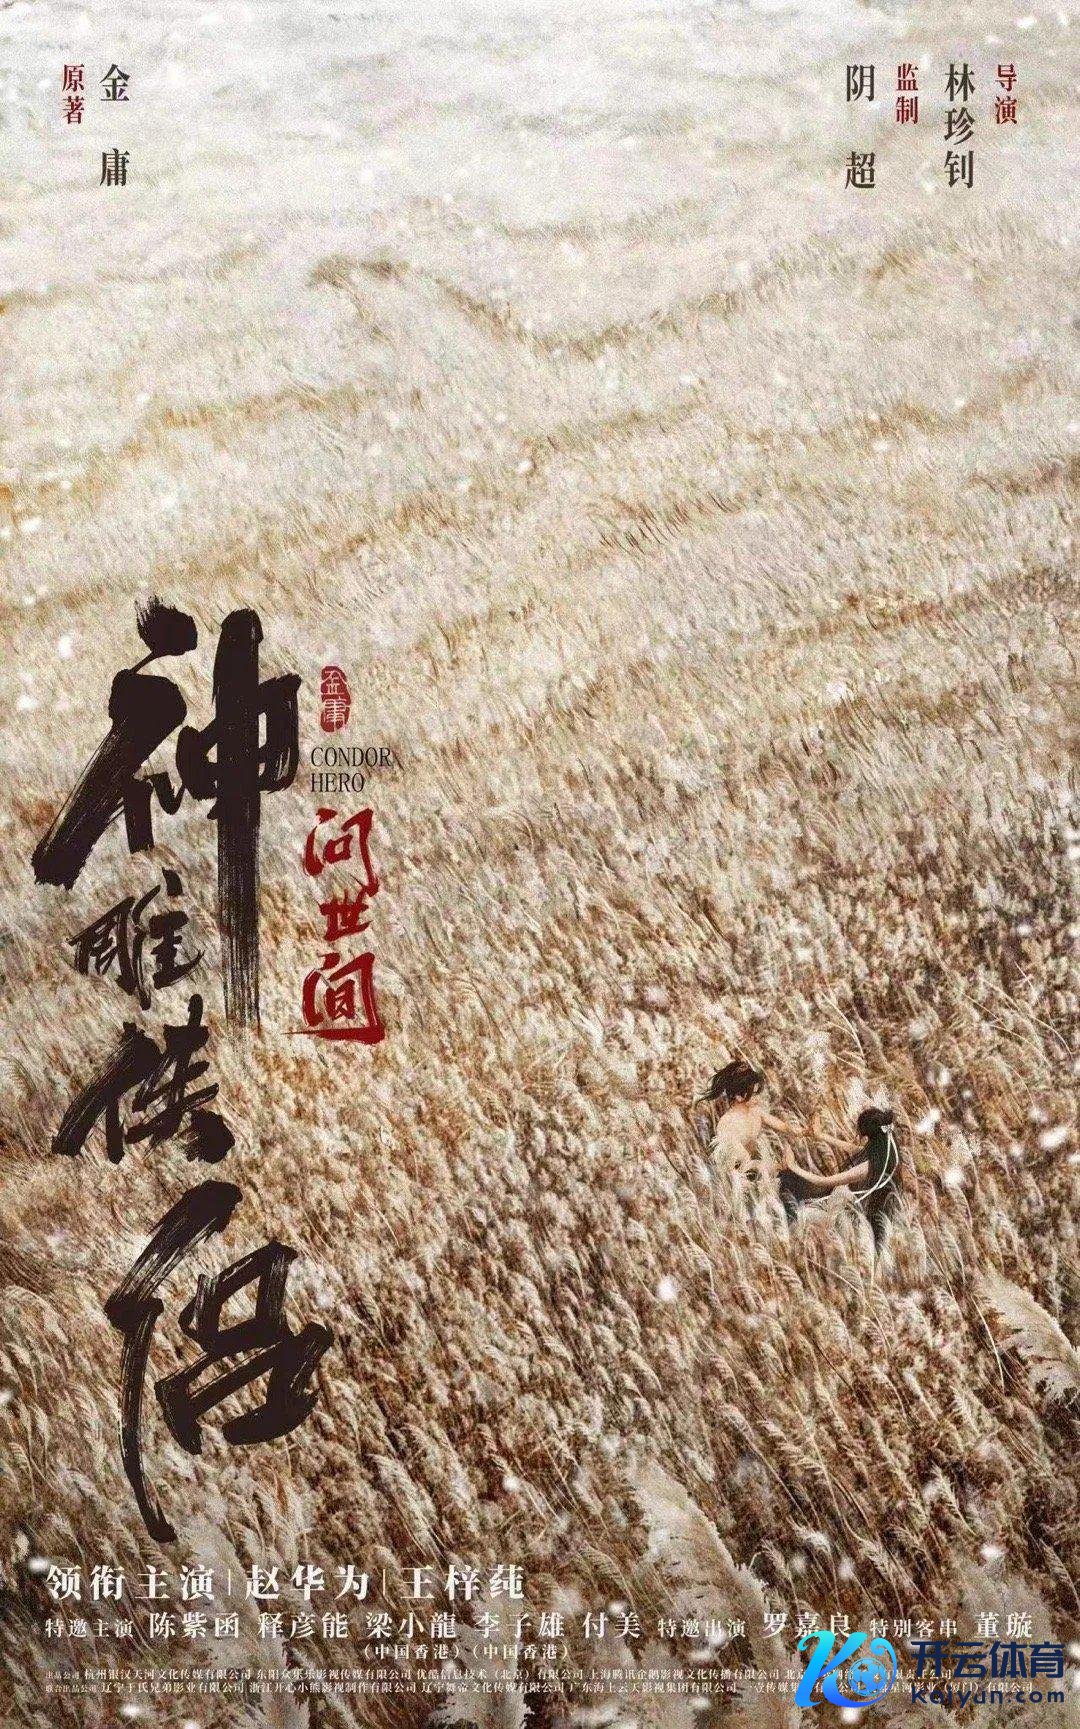 原著
金庸
导演
林珍钊
监制
阴超
神雕侠侣
金庸
CONDOR
HERO
问世间
领衔主演|赵华为|王梓莼
特邀主演 陈紫函 释彦能 梁小龍 李子雄 付美 特邀出演 罗嘉良 特别客串 董璇
(中国香港) (中国香港)
出品公司 杭州银汉天河文化传媒有限公司 东阳众乐乐影视传媒有限公司 优酷信息技术(北京)有限公司 上海腾讯企鹅影视文化传播有限公司 北京
联合出品公司 辽宁于氏兄弟影业有限公司 浙江开心小熊影视制作有限公司 辽宁舞帝文化传媒有限公司 广东海上云天影视集团有限公司
开云体育
Kaiyun.com